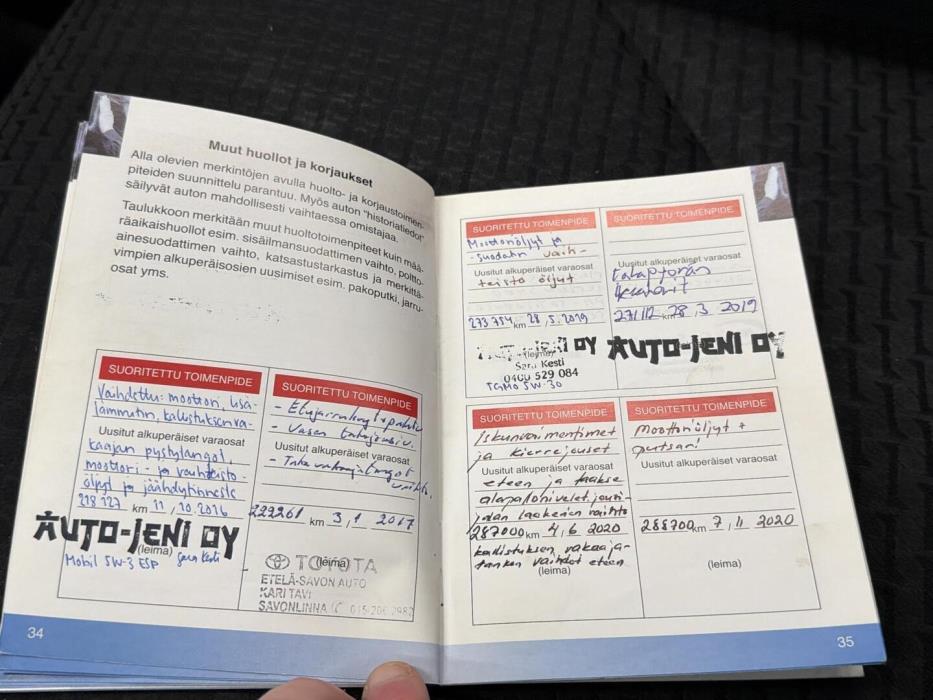 Muut huollot ja korjaukset
Alla olevien merkintöjen avulla huolto- ja korjaustoimen-
piteiden suunnittelu parantuu. Myös auton "historiatiedot"
säilyvät auton mahdollisesti vaihtaessa omistajaa.
Taulukkoon merkitään muut huoltotoimenpiteet kuin mää-
räaikaishuollot esim. sisäilmansuodattimen vaihto, poltto-
ainesuodattimen vaihto, katsastustarkastus ja merkittä-
vimpien alkuperäisosien uusimiset esim. pakoputki, jarru-
osat yms.
SUORITETTU TOIMENPIDE
Vaihdettu: moottori, lisä-
lämmutin, kallistuksenva-
Uusitut alkuperäiset varaosat
kaajan pystylangol,
moottori- ja vaihteisto-
öljyt ja jäähdytinneste
218 127 km 11, 10.2016
AUTO-JENI OY
(leima)
Mobil 5W-3 ESP
SUORITETTU TOIMENPIDE
- Vasen
Uusitut alkuperäiset varaosat
- Taka
229261 km 3, 1 2017
(leima)
TOYOTA
ETELÄ-SAVON AUTO
KARI TAVI
SAVONLINNA 015-206 2982
34
SUORITETTU TOIMENPIDE
Moottoriöljyt ja
-suodatin vaih-
Uusitut alkuperäiset varaosat
teisto öljyt
273 754 km 28, 5. 2019
OY
(leima)
Sara Kesti
0400 529 084
TGMO 5W-30
SUORITETTU TOIMENPIDE
Uusitut alkuperäiset varaosat
271112 km 28, 3 2019
AUTO-JENI OY
SUORITETTU TOIMENPIDE
Iskunvaimentimet
ja kierrejouset
Uusitut alkuperäiset varaosat
eteen ja taakse
alapallonivelet jousi-
jalan laakerien vaihto
287000 km 4, 6 2020
kallistuksen vakaaja-
tankon vaihdot eteen
(leima)
SUORITETTU TOIMENPIDE
Moottoriöljyt +
putsari
Uusitut alkuperäiset varaosat
288700 km 7, 11 2020
(leima)
35